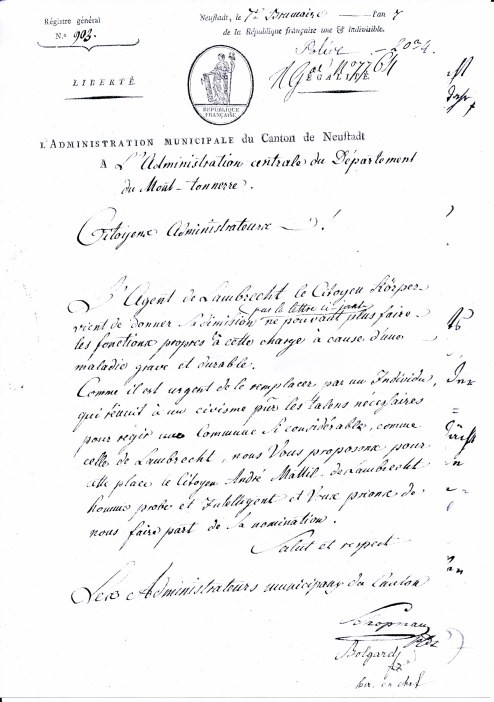 Régistre général
N.º 903.
Neustadt, le 7e Brumaire l'an 7
de la République française une & indivisible.
Police 2034
Nº 7764
LIBERTÉ
ÉGALITÉ
RÉPUBLIQUE
FRANÇAISE
L'ADMINISTRATION MUNICIPALE du Canton de Neustadt
A L'Administration centrale du Département
du Mont-tonnerre.
Citoyens Administrateurs !
L'Agent de Lambrecht le Citoyen Körper
par la lettre ci-jointe
vient de donner sa démission ne pouvant plus faire
les fonctions propres à cette charge à cause d'une
maladie grave et durable.
Comme il est urgent de le remplacer par un Individu
qui réunit à un civisme pur les talens nécessaires
pour régir une Commune si considérable, comme
celle de Lambrecht, nous Vous proposons pour
cette place le Citoyen André Mattil de Lambrecht
homme probe et Intelligent et Vous prions de
nous faire part de sa nomination.
Salut et respect
Les Administrateurs municipaux du Canton
Bolgard
en chef